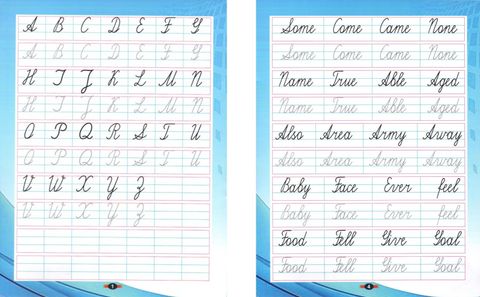 A B C D E F G
A B C D E F G
H I J K L M N
H I J K L M N
O P Q R S T U
O P Q R S T U
V W X Y Z
V W X Y Z
Some Come Came None
Some Come Came None
Name True Able Aged
Name True Able Aged
Also Area Army Away
Also Area Army Away
Baby Face Ever feel
Baby Face Ever feel
Food Fell Give Goal
Food Fell Give Goal
4